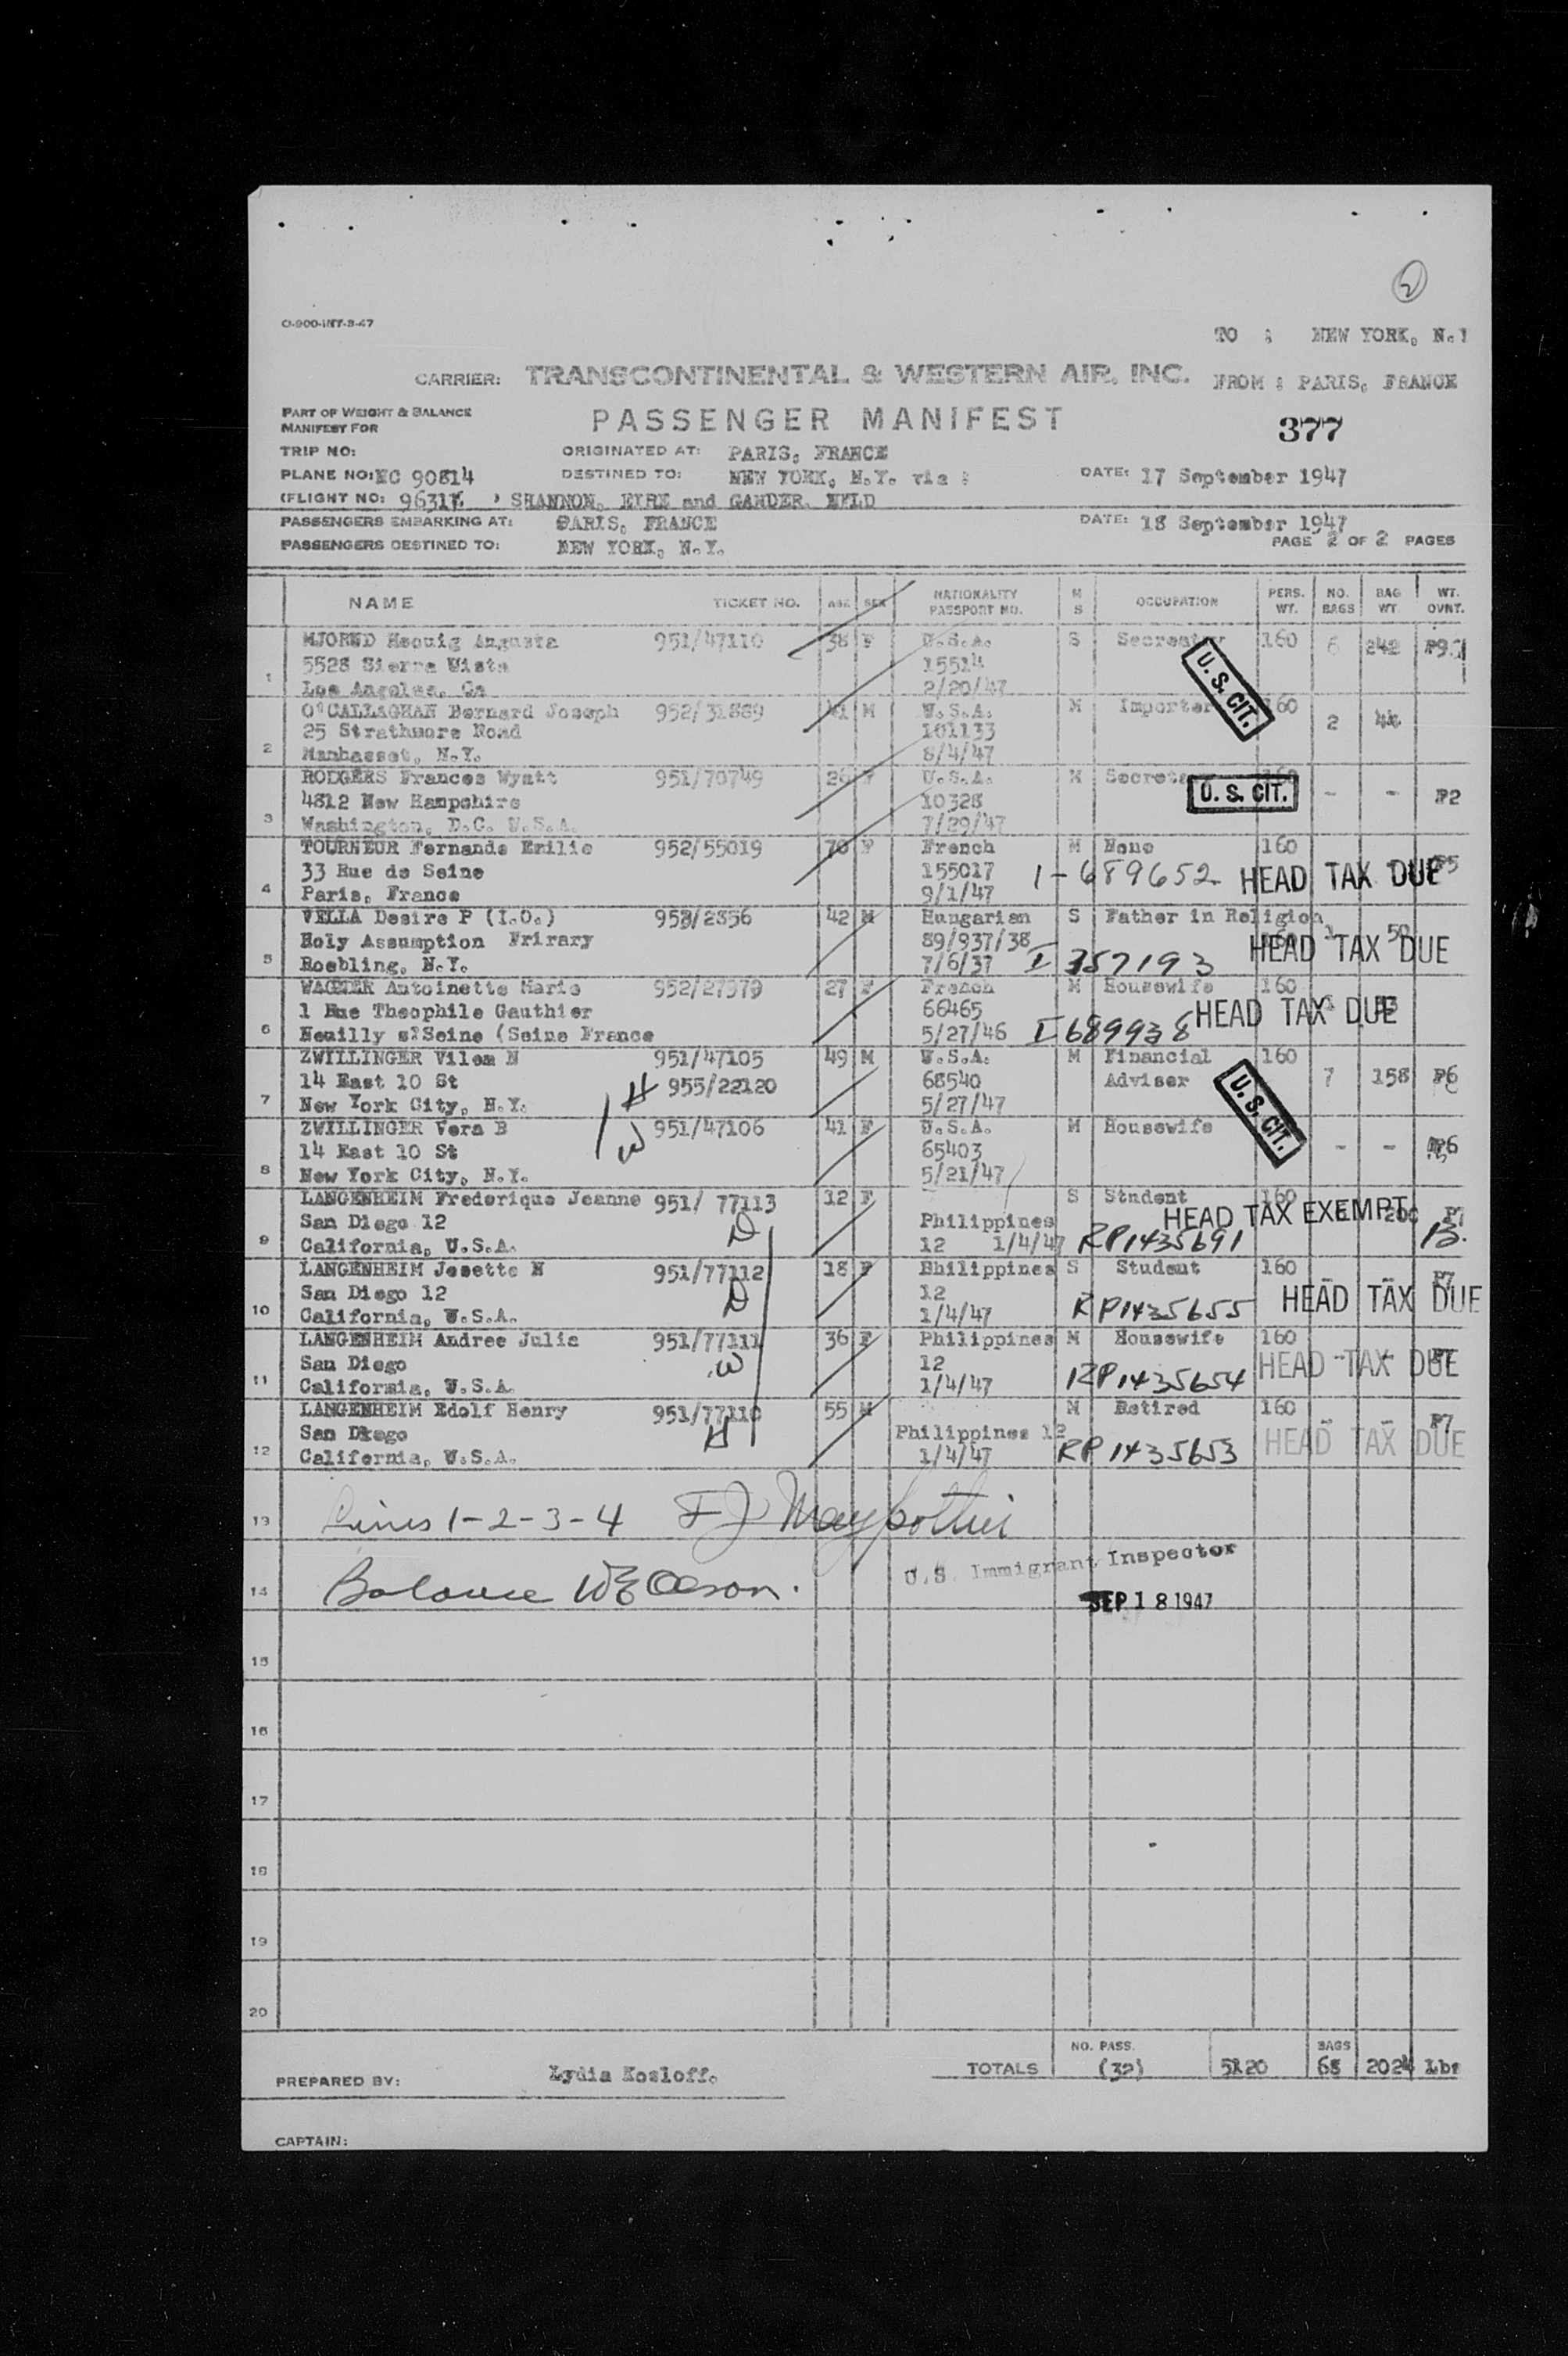 2
O-900-INT-3-47
TO : NEW YORK, N.Y
CARRIER: TRANSCONTINENTAL & WESTERN AIR, INC. FROM : PARIS, FRANCE
PART OF WEIGHT & BALANCE
MANIFEST FOR
PASSENGER MANIFEST
377
TRIP NO: ORIGINATED AT: PARIS, FRANCE
PLANE NO: NC 90814 DESTINED TO: NEW YORK, N.Y. via : DATE: 17 September 1947
(FLIGHT NO: ) SHANNON, EIRE and GANDER, NFLD
PASSENGERS EMBARKING AT: PARIS, FRANCE DATE: 18 September 1947
PASSENGERS DESTINED TO: NEW YORK, N.Y. PAGE 2 OF 2 PAGES
NAME TICKET NO. AGE SEX NATIONALITY PASSPORT NO. M S OCCUPATION PERS. WT. NO. BAGS BAG WT WT. OVNT.
MJORUD Augusta 951/47110 38 F U.S.A. S Secreatry 160 6 242
5528 Sierra Vista 15514
1 Los Angeles, Ca 2/20/47
U.S. CIT.
O'CALLAGHAN Bernard Joseph 952/31889 41 M U.S.A. M Importer 160
25 Strathmore Road 101133 2 44
2 Manhasset, N.Y. 8/4/47
RODGERS Frances Wyatt 951/70749 26 F U.S.A. M 160
4812 New Hampshire 10328 U. S. CIT. - - P2
3 Washington, D.C. U.S.A. 7/29/47
TOURNEUR Fernande Emilie 952/55019 70 F French M None 160
33 Rue de Seine 155017 1-689652 HEAD TAX DUE
4 Paris, France 9/1/47
VELLA Desire P (I.O.) 953/2856 42 M Hungarian S Father in Religion
Holy Assumption Frirary 89/937/38 160 1 50
5 Roebling, N.Y. 7/6/37 I 357193 HEAD TAX DUE
WAGNER Antoinette Marie 952/27979 27 F French M Housewife 160
1 Rue Theophile Gauthier 66465
6 Neuilly s?Seine (Seine France 5/27/46 I 689938 HEAD TAX DUE
ZWILLINGER Vilem N 951/47105 49 M U.S.A. M Financial 160
14 East 10 St H 955/22120 68540 Adviser 7 158 P6
7 New York City, N.Y. 5/27/47
U. S. CIT.
ZWILLINGER Vera B 951/47106 41 F U.S.A. M Housewife
14 East 10 St W 65403 - - P6
8 New York City, N.Y. 5/21/47
LANGENHEIM Frederique Jeanne 951/ 77113 12 F S Student 160
San Diego 12 D Philippines HEAD TAX EXEMPT P7
9 California, U.S.A. 12 1/4/47 RP1435691 13.
LANGENHEIM Josette N 951/77112 18 F Bhilippines S Student 160 - - P7
San Diego 12 D 12
10 California, U.S.A. 1/4/47 RP1435655 HEAD TAX DUE
LANGENHEIM Andree Julia 951/77111 36 F Philippines M Housewife 160
San Diego W 12 - - P7
11 California, U.S.A. 1/4/47 RP1435654 HEAD TAX DUE
LANGENHEIM Edolf Henry 951/77110 55 M M Retired 160 - - P7
San Dkego H Philippines 12
12 California, U.S.A. 1/4/47 RP 1435653 HEAD TAX DUE
13 Lines 1-2-3-4 F J
U.S. Immigrant Inspector
14 Balance W E Olson.
SEP 18 1947
15
16
17
18
19
20
NO. PASS. BAGS
PREPARED BY: Lydia Kosloff. TOTALS (32) 5120 68 2024 Lbs
CAPTAIN: